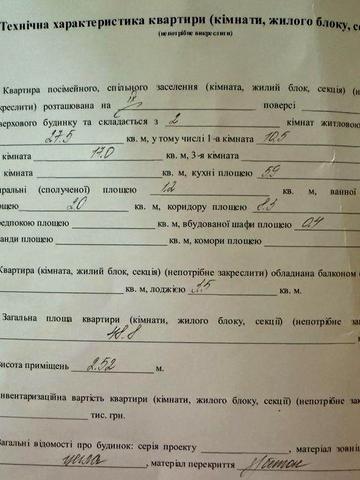 Технічна характеристика квартири (кімнати, жилого блоку, се
(непотрібне викреслити)
Квартира посімейного, спільного заселення (кімната, жилий блок, секція) (не
креслити) розташована на IX поверсі
верхового будинку та складається з 2 кімнат житловою
27.5 кв. м, у тому числі 1-а кімната 10.5
кімната 17.0 кв. м, 3-я кімната
кімната кв. м, кухні площею 5.9
ральні (сполученої) площею 1.2 кв. м, ванної
ощею 2.0 кв. м, коридору площею 8.3
редпокою площею кв. м, вбудованої шафи площею 0.4
анди площею кв. м, комори площею
Квартира (кімната, жилий блок, секція) (непотрібне закреслити) обладнана балконом
кв. м, лоджією 3.5 кв. м.
Загальна площа квартири (кімнати, жилого блоку, секції) (непотрібне зак
48.8
исота приміщень 2.52 м.
нвентаризаційна вартість квартири (кімнати, жилого блоку, секції) (непотрібне зак
тис. грн.
агальні відомості про будинок: серія проекту , матеріал зовніш
цегла , матеріал перекриття з/бетон